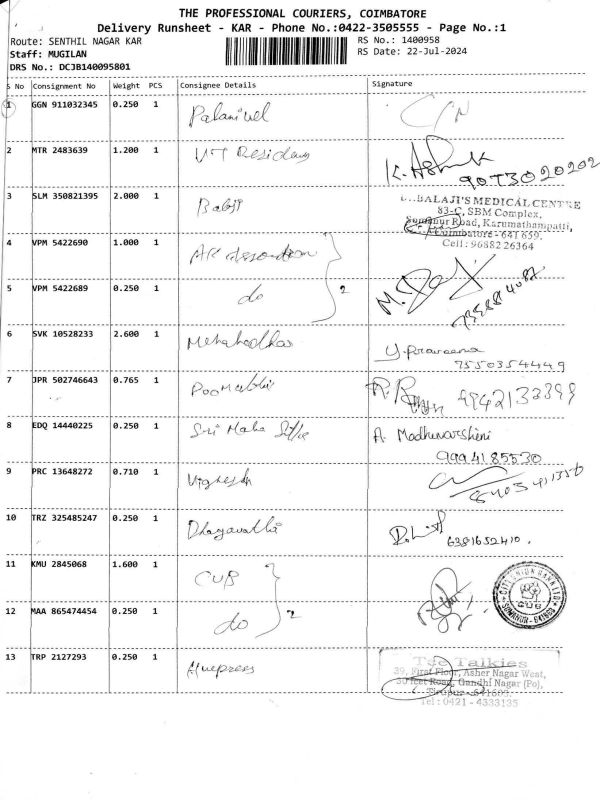 THE PROFESSIONAL COURIERS, COIMBATORE
Delivery Runsheet - KAR - Phone No.:0422-3505555 - Page No.:1
Route: SENTHIL NAGAR KAR RS No.: 1400958
Staff: MUGILAN RS Date: 22-Jul-2024
DRS No.: DCJB140095801
S No Consignment No Weight PCS Consignee Details Signature
1 GGN 911032345 0.250 1 Palanivel
2 MTR 2483639 1.200 1 VT Residency
K. Ashok
9073020202
3 SLM 350821395 2.000 1 Balaji
BALAJI'S MEDICAL CENTRE
83-C, SBM Complex,
Somanur Road, Karumathampatti,
Coimbatore - 641 659.
Cell : 96882 26364
4 VPM 5422690 1.000 1
5 VPM 5422689 0.250 1 do 2
6 SVK 10528233 2.600 1
y. praveena
7550354449
7 JPR 502746643 0.765 1
9942133399
8 EDQ 14440225 0.250 1 Sri Maha
A. Madhuvarshini
9994185530
9 PRC 13648272 0.710 1 Vignesh
10 TRZ 325485247 0.250 1 Dhagavathi
6381652410.
11 KMU 2845068 1.600 1 CUB
CITY UNION BANK LTD
CUB
SOMANUR - 641668
12 MAA 865474454 0.250 1 do 2
13 TRP 2127293 0.250 1
Tee Talkies
39, First Floor, Asher Nagar West,
30 feet Road, Gandhi Nagar (Po),
Tirupur - 641603.
Tel : 0421 - 4333135